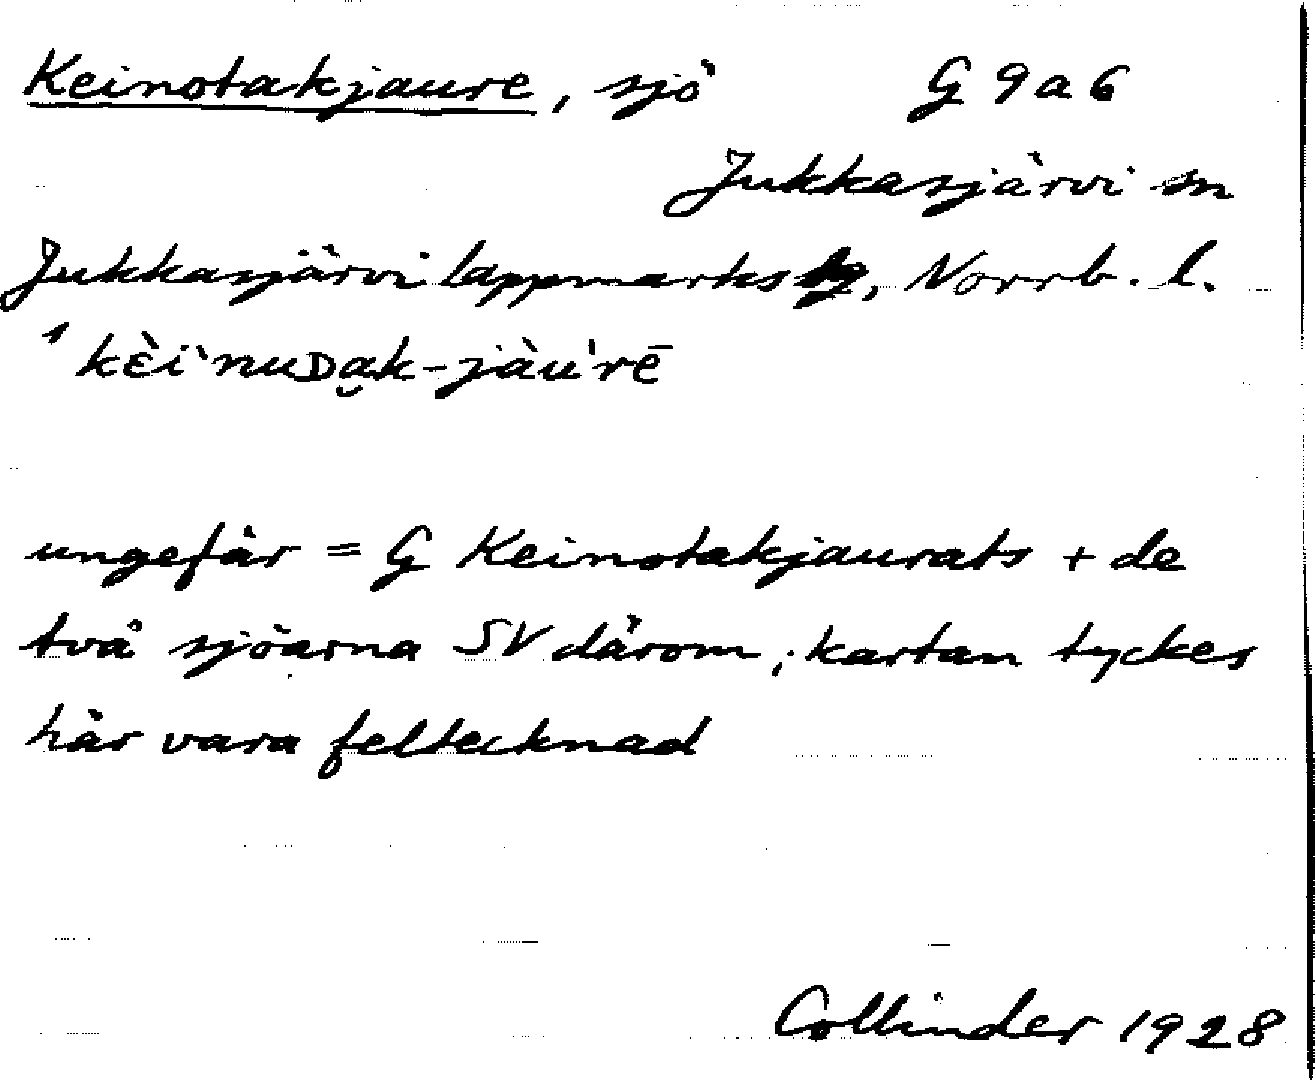 Keinotakjaure, sjö G 9 a 6
Jukkasjärvi sn
Jukkasjärvi lappmarks tg, Norrb. l.
1 kὲi`nuᴅa̮k-jàu'rē
ungefär = G Keinotakjaurats + de
två sjöarna SV därom; kartan tyckes
här vara feltecknad
Collinder 1928